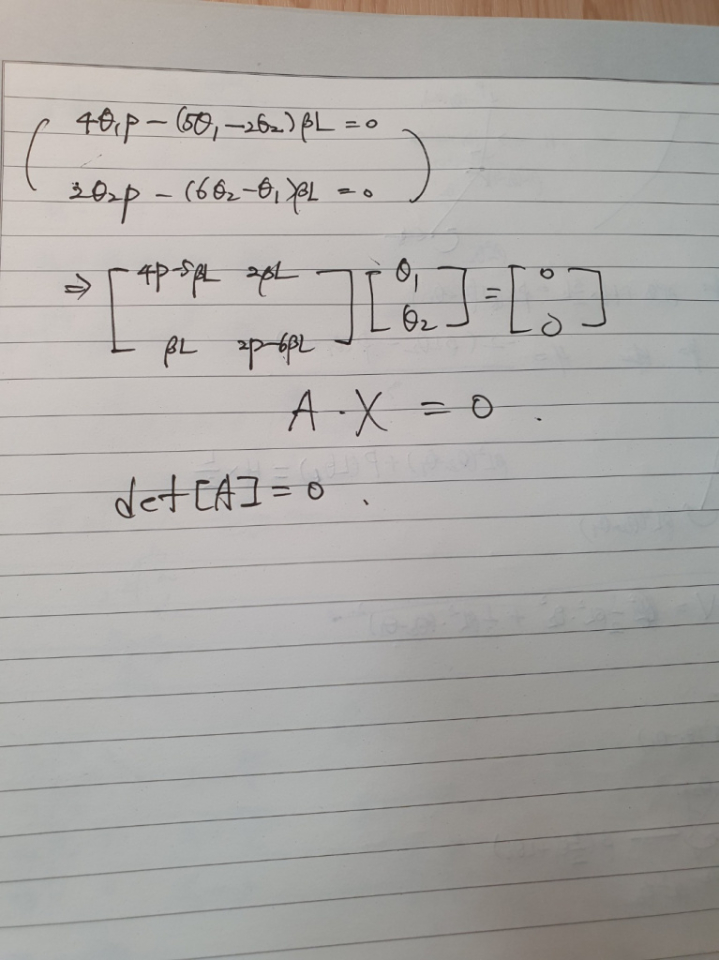 4θ₁p − (5θ₁ − 2θ₂)βL = 0
2θ₂p − (6θ₂ − θ₁)βL = 0
⇒ [ 4p-5βL 2βL ] [ θ₁ ] = [ 0 ]
[ βL 2p-6βL ] [ θ₂ ] [ 0 ]
A · X = 0 .
det[A] = 0 .